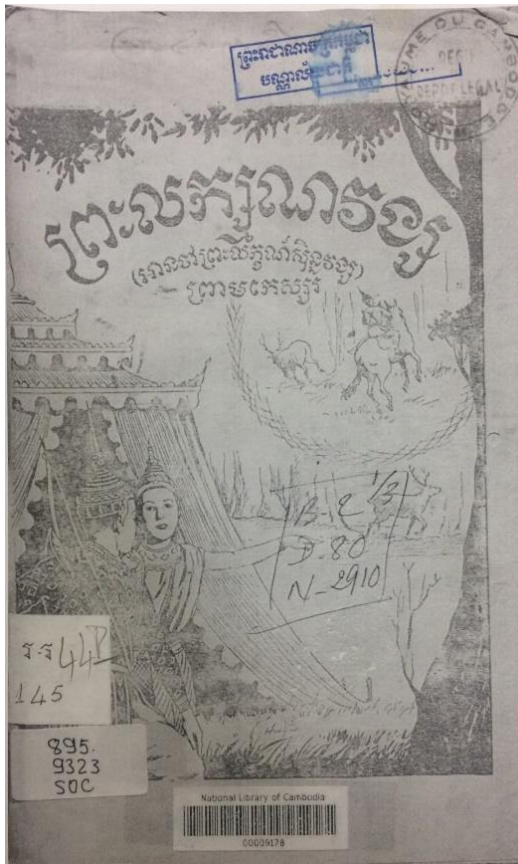 ព្រះរាជាណាចក្រកម្ពុជា
បណ្ណាល័យជាតិ
ROYAUME DU CAMBODGE
DEPOT LEGAL
ព្រះលក្សណវង្ស
(អានថាព្រះល័ក្ខណ៍ស៊ិន្នវង្ស)
ព្រាមកេស្សរ
B-2 1/3
D-80
N-2910
145
895.
9323
SOC
National Library of Cambodia
00009178